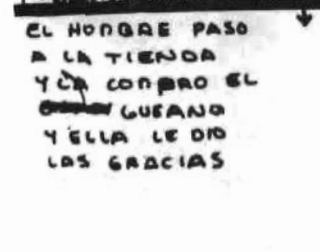 EL HOMBRE PASO
A LA TIENDA
Y LA COMPRO EL
GUSANO
Y ELLA LE DIO
LAS GRACIAS